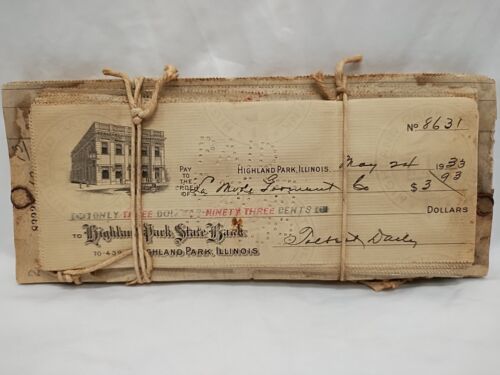 No 8631
HIGHLAND PARK, ILLINOIS, May 24 1933
PAY
TO
THE
ORDER
OF La Mode Garment Co $ 3 93
ONLY THREE DOL NINETY THREE CENTS
DOLLARS
TO Highland Park State Bank
TO-439 HIGHLAND PARK, ILLINOIS